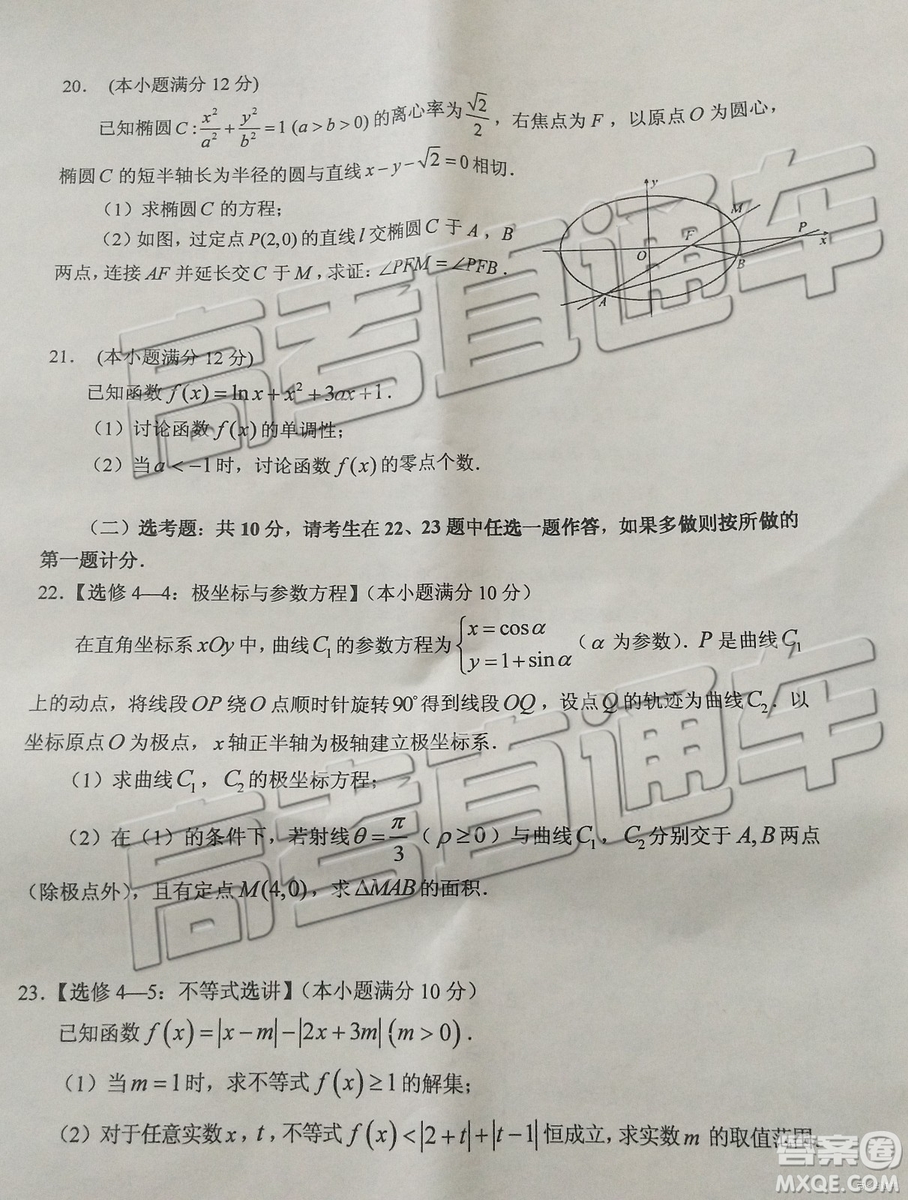 20. (本小题满分12分)
已知椭圆C:x²/a²+y²/b²=1(a>b>0)的离心率为√2/2，右焦点为F，以原点O为圆心，
椭圆C的短半轴长为半径的圆与直线x-y-√2=0相切.
（1）求椭圆C的方程；
（2）如图，过定点P(2,0)的直线l交椭圆C于A，B
两点,连接AF并延长交C于M，求证:∠PFM=∠PFB.
y
M
F
P
x
O
B
A
21. (本小题满分12分)
已知函数f(x)=lnx+x²+3ax+1.
（1）讨论函数f(x)的单调性；
（2）当a<-1时，讨论函数f(x)的零点个数.
（二）选考题：共10分，请考生在22、23题中任选一题作答，如果多做则按所做的
第一题计分.
22.【选修4—4：极坐标与参数方程】（本小题满分10分）
在直角坐标系xOy中，曲线C₁的参数方程为{x=cosα y=1+sinα（α为参数）.P是曲线C₁
上的动点，将线段OP绕O点顺时针旋转90°得到线段OQ，设点Q的轨迹为曲线C₂.以
坐标原点O为极点，x轴正半轴为极轴建立极坐标系.
（1）求曲线C₁，C₂的极坐标方程；
（2）在（1）的条件下，若射线θ=π/3（ρ≥0）与曲线C₁，C₂分别交于A,B两点
（除极点外），且有定点M(4,0)，求ΔMAB的面积.
23.【选修4—5：不等式选讲】（本小题满分10分）
已知函数f(x)=|x-m|-|2x+3m|(m>0).
（1）当m=1时，求不等式f(x)≥1的解集；
（2）对于任意实数x,t,不等式f(x)<|2+t|+|t-1|恒成立,求实数m的取值范围.
高考直通车
高考直通车
答案圈
MXQE.COM